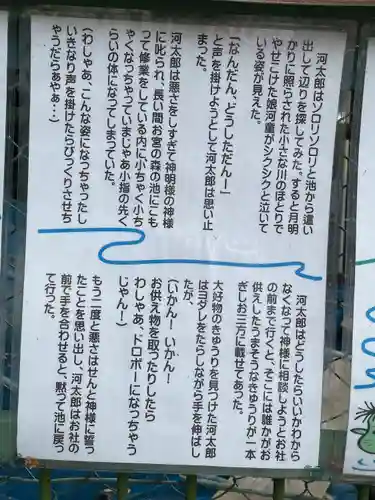 河太郎はソロリソロリと池から這い
出して辺りを探してみた。すると月明
かりに照らされた小さな川のほとりで
やせこけた娘河童がシクシクと泣いて
いる姿が見えた。
「なんだん、どうしただん!」
と声を掛けようとして河太郎は思い止
まった。
河太郎は悪さをしすぎて神明様の神様
に叱られ、長い間お宮の森の池にこも
って修業をしている内に小ちゃく小ち
ゃくなっちゃっていまじゃあ小指の先く
らいの体になってしまっていた。
(わしゃあ、こんな姿になっちゃったし
いきなり声を掛けたらびっくりさせち
ゃうだらぁやぁ…)
河太郎はどうしたらいいかわから
なくなって神様に相談しようとお社
の前まで行くと、そこには誰かがお
供えしたうまそうなきゅうりが一本
ぎしお三方に載せてあった。
大好物のきゅうりを見つけた河太郎
はヨダレをたらしながら手を伸ばし
たが、
(いかん!いかん!
お供え物を取ったりしたら
わしゃあ、ドロボーになっちゃう
じゃん!)
もう二度と悪さはせんと神様に誓っ
たことを思い出し、河太郎はお社の
前で手を合わせると、黙って池に戻っ
て行った。